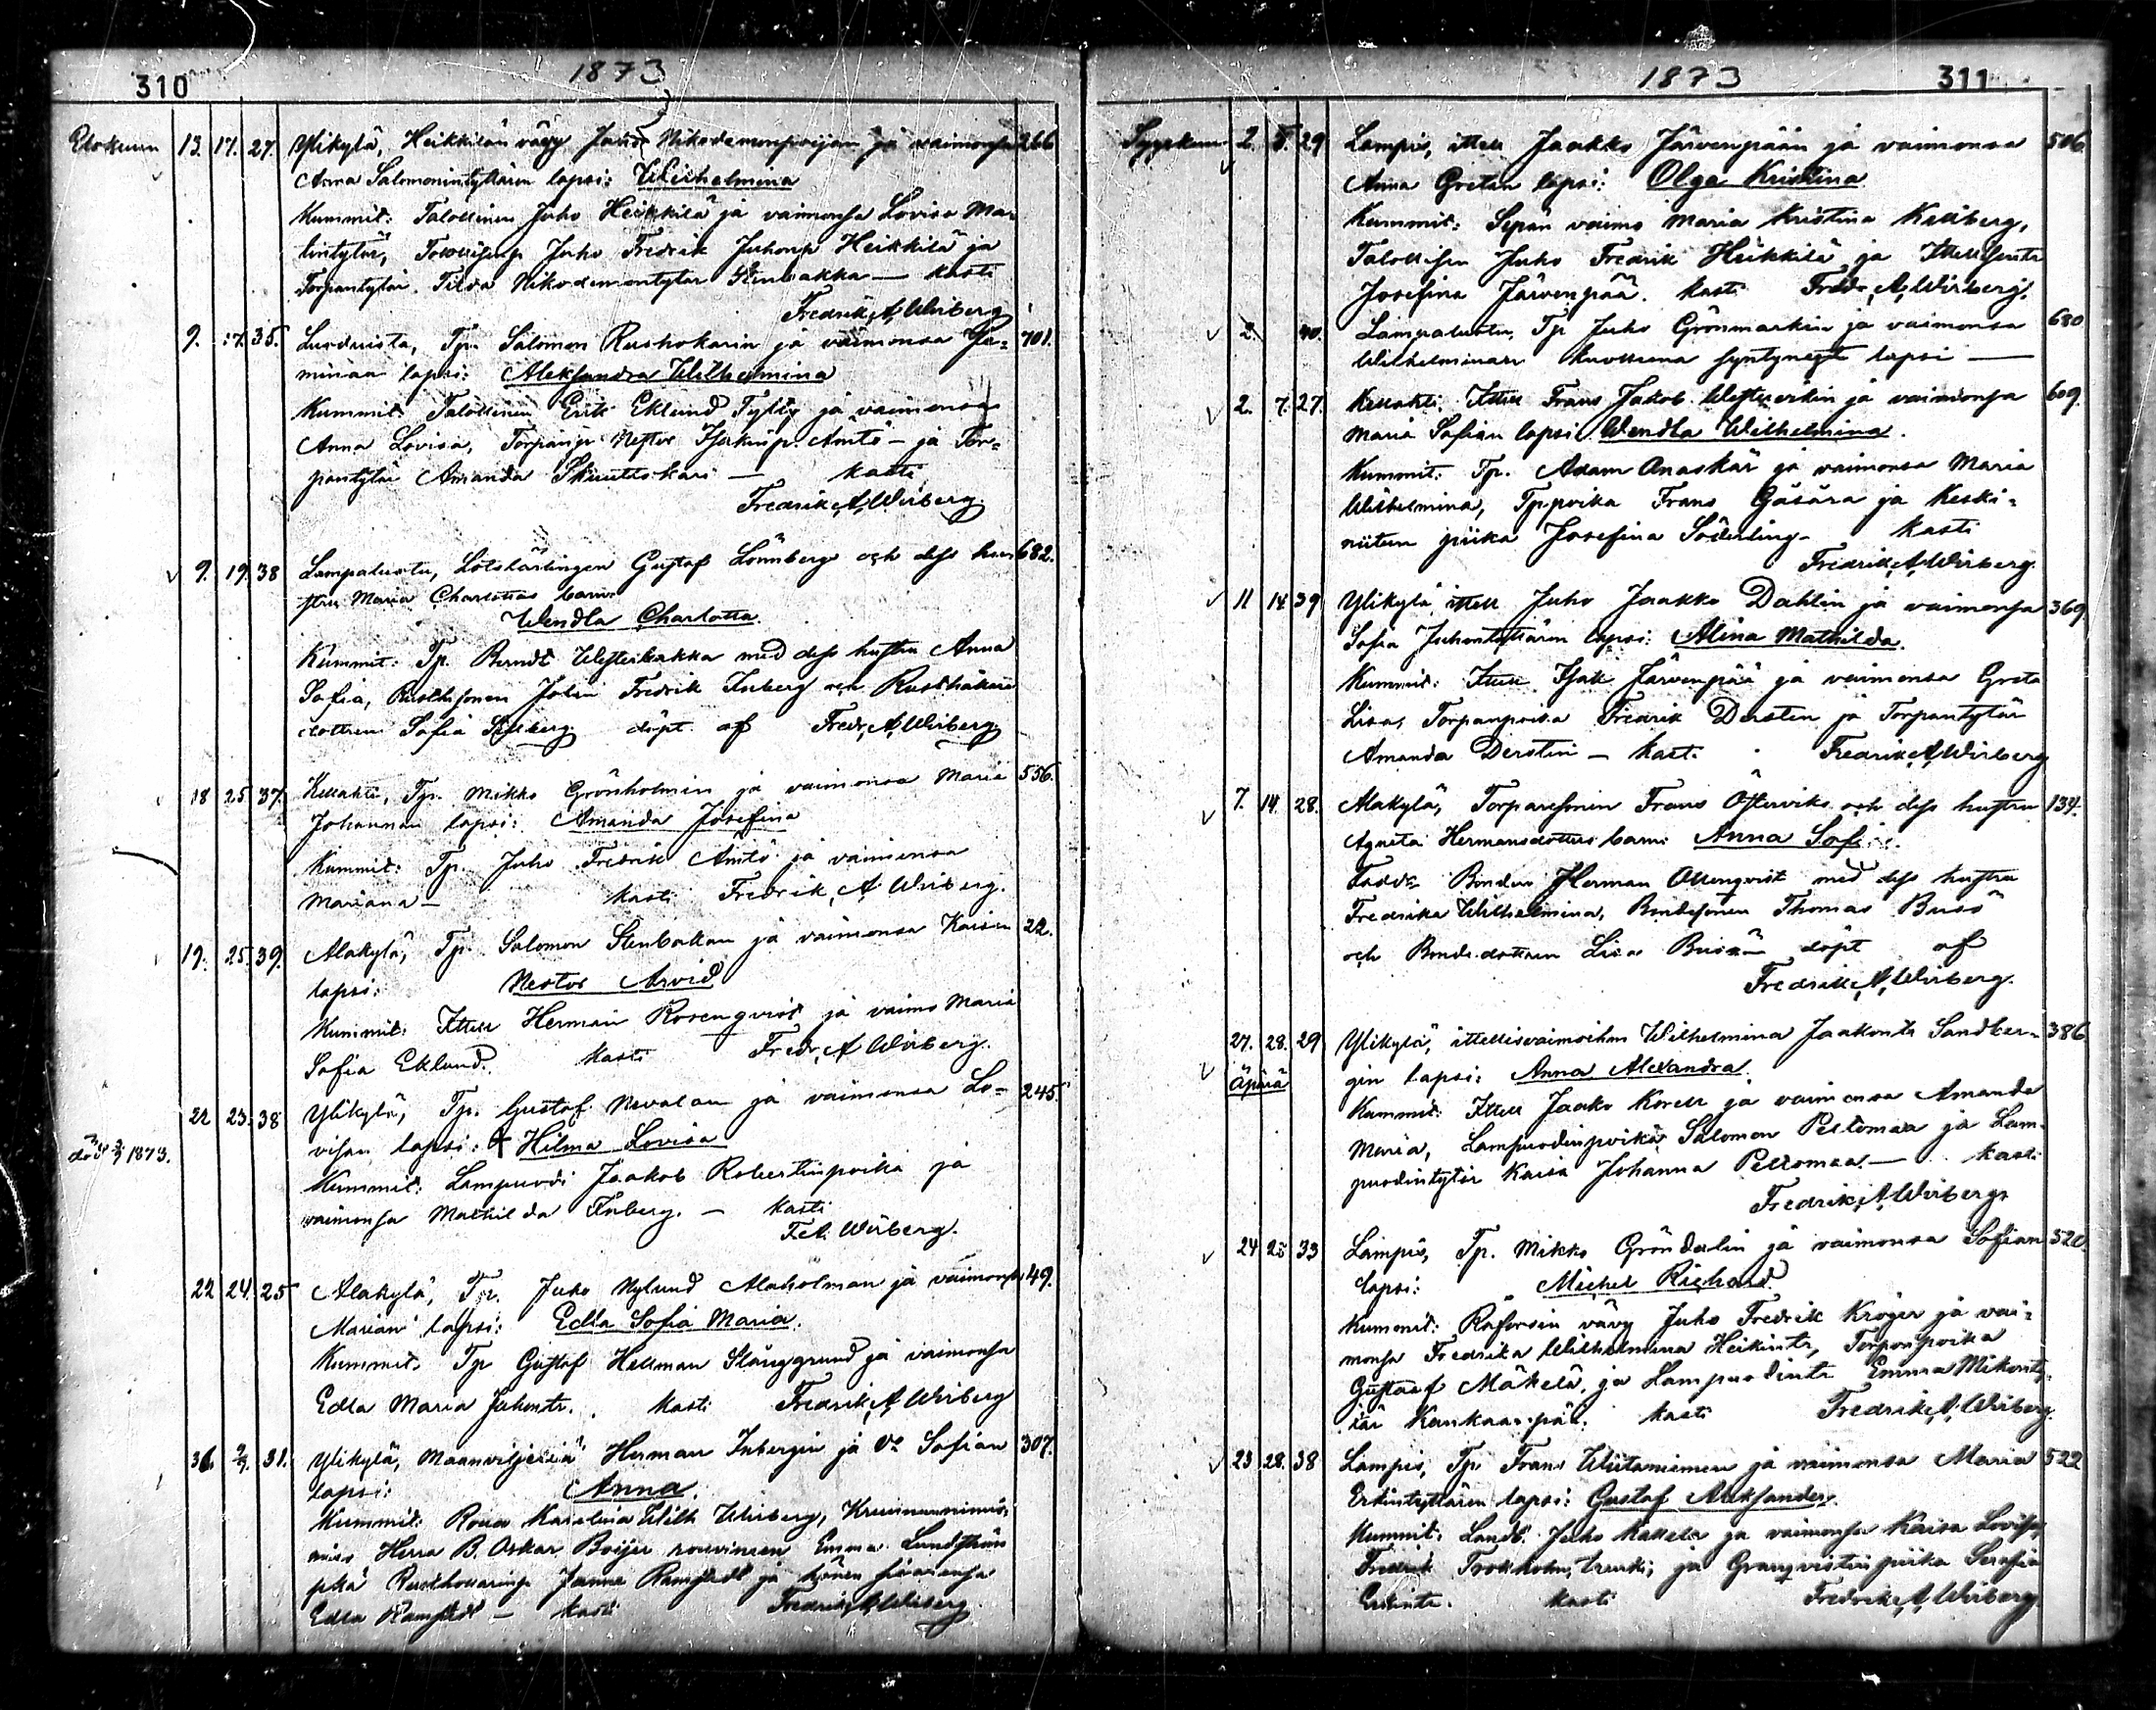 310
1873
Elokuun 13. 17. 27. Ylikylä, Heikkilän vävy Juho Nikodemuspoijan ja vaimonsa 266
Anna Salomonintyttären lapsi: Wilhelmina
Kummit: Talollinen Juho Heikkilä ja vaimonsa Lovisa Ma-
tintytär, Juho Fredrik Juhonp. Heikkilä ja
Torpantytär Tilda Nikodemontytär Stenbakka — kasti
Fredrik A Wirberg
9. 17. 35. Luodusta, Tp. Salomon Ruohokarin ja vaimonsa 701.
minan lapsi: Aleksandra Wilhelmina
Kummit: Talollinen Erik Eklund Tyltty ja vaimonsa
Anna Lovisa, Nestor Anttö — ja Tor-
pantytär Amanda Skuuttokari — kasti
Fredrik A Wirberg
9. 19. 38 Lampaluoto, Lotslärlingen Gustaf Lönnberg och dess hu- 682.
stru Maria Charlottas barn:
Wendla Charlotta
Kummit: Tp. Berndt Westerbakka med dess hustru Anna
Sofia, Johan Fredrik Inberg och Rusthållare
dottren Sofia döpt af Fredr. A. Wirberg
18 25 37. Kellahti, Tp. Mikko Grönholmin ja vaimonsa Maria 556.
Johannan lapsi: Amanda Josefina
Kummit: Tp. Juho Fredrik Anttö ja vaimonsa
Mariana — kasti Fredrik A Wirberg.
19. 25. 39. Alakylä, Tp. Salomon Stenbakan ja vaimonsa Kaisan 22.
lapsi: Nestor Arvid
Kummit: Ittell Herman Rosenqvist ja vaimo Maria
Sofia Eklund. kasti Fredr. A Wirberg.
22 23. 38 Ylikylä, Tp. Gustaf Nevalan ja vaimonsa Lo- 245.
död 1873. visan lapsi: + Hilma Lovisa
Kummit: Lampuodi Jaakob Robertinpoika ja
vaimonsa Mathilda Inberg. — kasti
F.A. Wirberg.
22 24. 25 Alakylä, Tp. Juho Nylund Alaholman ja vaimonsa 49.
Marian lapsi: Edla Sofia Maria.
Kummit. Tp Gustaf Hellman Stånggrund ja vaimonsa
Edla Maria Juhontr. kasti Fredrik A Wirberg
36. 2/9. 31. Ylikylä, Maanviljeliä Herman Inbergin ja Vo Sofian 307.
lapsi: Anna.
Kummit: Roua Karolina Wilh Wirberg,
mies Herra B. Oskar Boijer rouvineen Emma Lundström
pkä Janne Ramstedt ja hänen sisarensa
Edla Ramstedt — kasti Fredrik A Wirberg
1873
311
Syyskuun 2. 5. 29 Lampis, ittell Jaakko Järvenpään ja vaimonsa 506
Anna Gretan lapsi: Olga Kristina
Kummit: Sepän vaimo Maria Kristina Kellberg,
Talollisen Juho Fredrik Heikkilä ja
Josefina Järvenpää. kasti Fredr. A. Wirberg.
2. 40. Lampaluoto, Tp Juho Grönmarkin ja vaimonsa 680
Wilhelminan kuolluna syntynyt lapsi —
2. 7. 27. Kellahti, Ittell Frans Jakob ja vaimonsa 609.
Maria Sofian lapsi Wendla Wilhelmina.
Kummit: Tp. Adam Anaskär ja vaimonsa Maria
Wilhelmina, Tp.poika Frans ja Keski-
niitun piika Josefina Söderling — kasti
Fredrik A Wirberg.
11 14. 39 Ylikylä ittell Juho Jaakko Dahlin ja vaimonsa 369
Sofia Juhontyttären lapsi: Alina Mathilda.
Kummit: Ittell Isak Järvenpää ja vaimonsa Greta
Lisa, Torpanpoika Fredrik Dersten ja Torpantytär
Amanda Derstin — kast. Fredrik A Wirberg
7. 14. 28. Alakylä, Torparesonen Frans Österviks och dess hustru 134.
Agneta Hermansdotters barn: Anna Sofi
Faddr. Bonden Herman Ollenqvist med dess hustru
Fredrika Wilhelmina, Bondesonen Thomas Busö
och Bondedottren Lisa döpt af
Fredrik A Wirberg.
27. 28. 29 Ylikylä, ittellisvaimoihm Wilhelmina Jaakontr Sandber- 386
Äpärä gin lapsi: Anna Alexandra
Kummit: Ittell Jaako Korell ja vaimonsa Amanda
Maria, Lampuodinpoika Salomon Peltomaa ja Lam-
puodintytär Kaisa Johanna Peltomaa — kasti
Fredrik A Wirberg
24 25 33 Lampis, Tp. Mikko Gröndalin ja vaimonsa Sofian 520
lapsi: Michel Richard
Kummit: Räforsin vävy Juho Fredrik Kröger ja vai-
monsa Fredrika Wilhelmina Heikintr, Torpanpoika
Gustaaf Mäkelä, ja Lampuodintr Emma Mikonty-
tär Kankaanpää. kasti Fredrik A Wirberg.
23 28. 38 Lampis, Tp Frans Wiitaniemen ja vaimonsa Maria 522
Erkintyttären lapsi: Gustaf Aleksander.
Kummit: Landb. Juho Mäkelä ja vaimonsa Kaisa Lovisa,
Fredrik renki; ja Granqvistin piika Serafia
Erkintr. kasti Fredrik A Wirberg